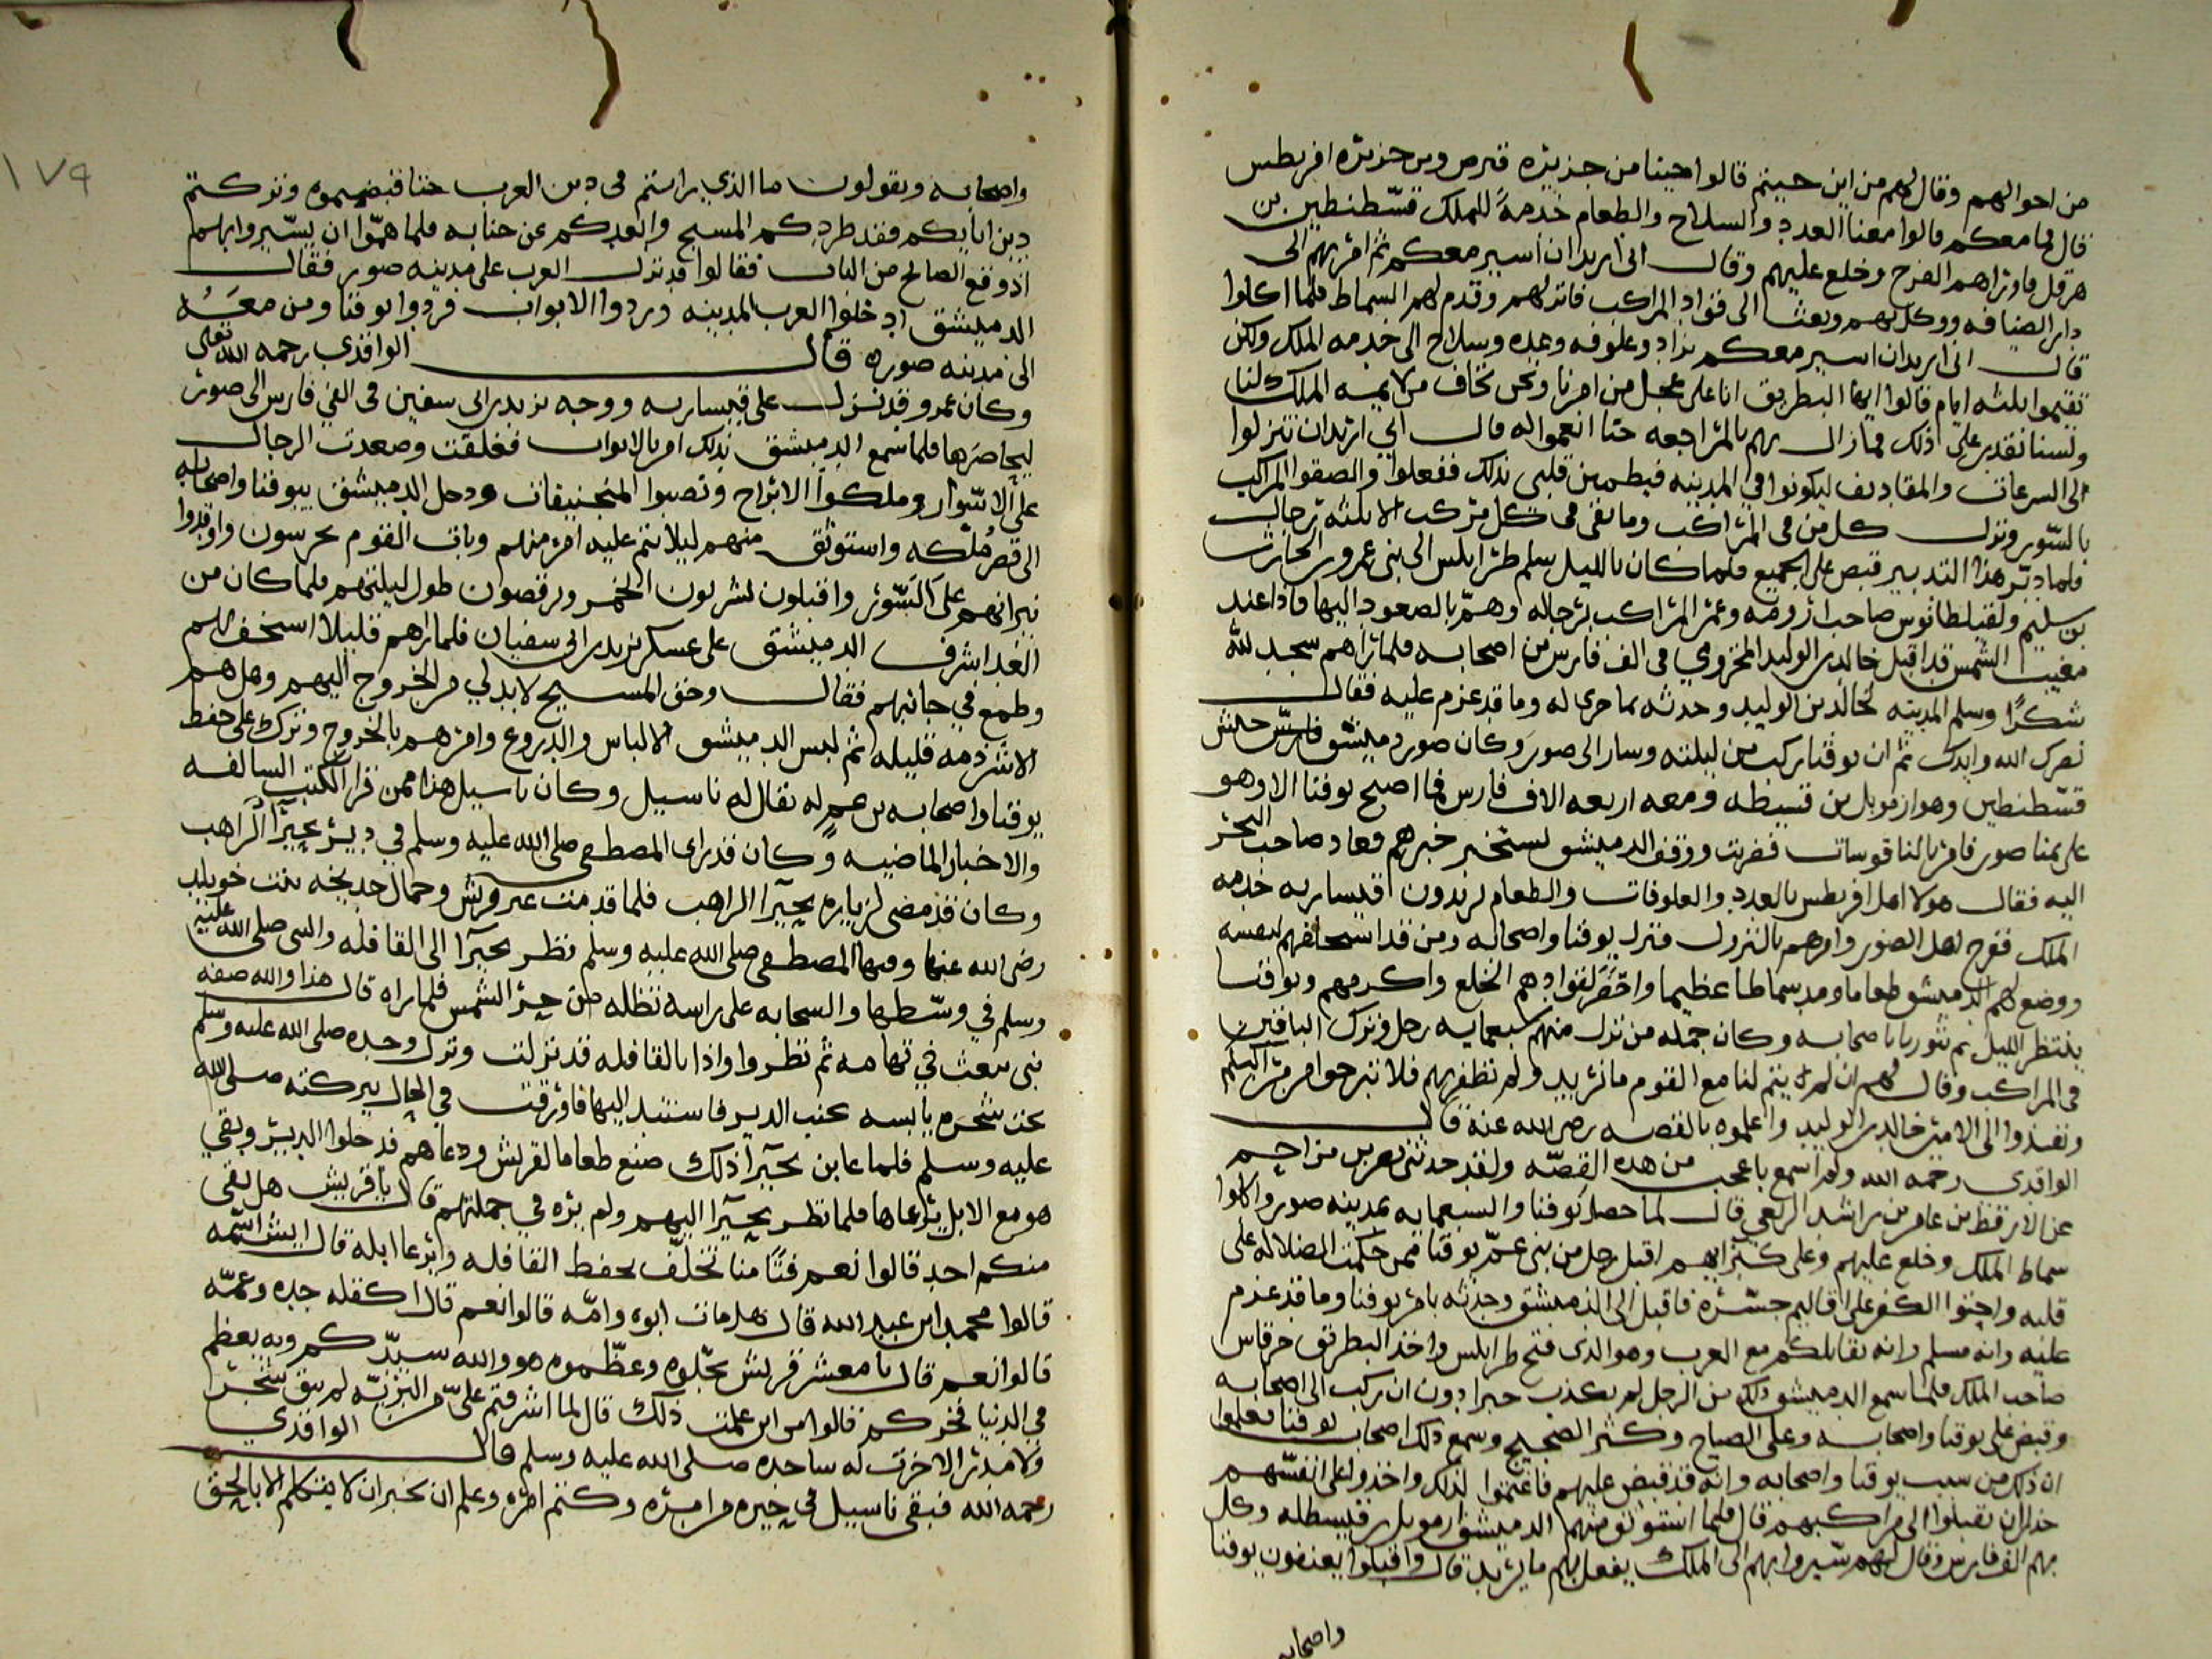 من احوالهم وقال لهم من اين جيتم قالوا جينا من جزيره قبرص ومن جزيره اقريطس
قال لما معكم قالوا معنا العدد والسلاح والطعام خدمة للملك قسطنطين بن
هرقل فاوراهم الفرح وخلع عليهم وقال انى اريد ان اسير معكم ثم امر بهم الى
دار الضيافه ووكل بهم وبعث الى قواد المراكب فانزلهم وقدم لهم السماط فلما اكلوا
قال انى اريد ان اسير معكم بزاد وعلوفه وعده وسلاح الى خدمه الملك ولكن
تقيموا ثلثه ايام قالوا ايها البطريق انا على عجل من امرنا ونحن نخاف من لايمه الملك لنا
ولسنا نقدر على ذلك فما زال بهم بالمراجعه حتا انعموا له قال انى اريد ان تنزلوا
الى السرعات والمقاديف ليكونوا فى المدينه فيطمين قلبى بذلك ففعلوا والصقوا المراكب
بالسور ونزل كل من فى المراكب وما بقى فى كل مركب الا ثلثه رجال
فلما دبر هذا التدبير قبض على الجميع فلما كان بالليل سلم طرابلس الى بنى عمرو الحارث
بن سليم ولفتلطانوس صاحب رومه وعمر المراكب برجاله وهم بالصعود اليها فاذا عند
مغيب الشمس قد اقبل خالد بن الوليد المخزومي فى الف فارس من اصحابه فلما راهم سجد لله
شكرا وسلم المدينه لخالد بن الوليد وحدثه بما جرى له وما قد عزم عليه فقال
نصرك الله وايدك ثم ان يوقنا ركب من ليلته وسار الى صور وكان صور دميشق فارس جيش
قسطنطين وهو ارمويل بن قسيطه ومعه اربعه الاف فارس فما اصبح يوقنا الا وهو
على مينا صور فامر بالناقوسات فضربت ووقف الدميشق يستخبر خبرهم فعاد صاحب البحر
اليه فقال هولا اهل اقريطس بالعدد والعلوفات والطعام يريدون اقيساريه خدمه
الملك ففرح اهل الصور وامرهم بالنزول فنزل يوقنا واصحابه ومن قد استخلفهم لنفسه
ووضع لهم الدميشق طعاما ومد سماطا عظيما واحضر لقوادهم الخلع واكرمهم ويوقنا
ينتظر الليل ثم يثور باصحابه وكان جمله من نزل منهم سبعمايه رجل وترك الباقين
فى المراكب وقال لهم ان لم يتم لنا مع القوم ما نريد ولم نظفر بهم فلا تبرحوا من مراكبكم
ونفذوا الى الامير خالد بن الوليد واعلموه بالقصه رضى الله عنه قال
الواقدى رحمه الله ولم اسمع باعجب من هذه القصه ولقد حدثنى نصر بن مزاحم
عن الارقط بن عامر بن راشد الربعى قال لما حصل يوقنا والسبعمايه بمدينه صور واكلوا
سماط الملك وخلع عليهم وعلى كبرايهم اقبل رجل من بنى عم يوقنا ممن حكمت الضلاله على
قلبه واحنوا الكفر على اقاليم جسره فاقبل الى الدميشق وحدثه بامر يوقنا وما قد عزم
عليه وانه مسلم وانه يقاتلكم مع العرب وهو الذى فتح طرابلس واخذ البطريق جرفاس
صاحب الملك فلما سمع الدميشق ذلك من الرجل لم يكذب خبرا دون ان ركب الى اصحابه
وقبض على يوقنا واصحابه وعلى الصياح وكثر الضجيج وسمع ذلك اصحاب يوقنا فعلموا
ان ذلك من سبب يوقنا واصحابه وانه قد قبض عليهم فاغتموا لذلك واخذوا على انفسهم
حذرا ان يقبلوا الى مراكبهم قال فلما استوثق منهم الدميشق ارمويل بن قيسطله وكل
بهم الف فارس وقال لهم سيروا بهم الى الملك يفعل بهم ما يريد قال واقبلوا يعنفون يوقنا
واصحابه
١٧٩
واصحابه ويقولون ما الذي رايتم فى دين العرب حتا قبضتموه وتركتم
دين ابايكم فقد طردكم المسيح وابعدكم عن جنابه فلما هموا ان يسيروا بهم
اذ وقع الصالح من الباب فقالوا قد نزل العرب على مدينه صور فقال
الدميشق ادخلوا العرب المدينه وردوا الابواب فردوا يوقنا ومن معه
الى مدينه صوره قال الواقدي رحمه الله تعالى
وكان عمرو قد نزل على قيساريه ووجه يزيد بن ابى سفين فى الفي فارس الى صور
ليحاصرها فلما سمع الدميشق بذلك امر بالابواب فغلقت وصعدت الرجال
على الاسوار وملكوا الابراج ونصبوا المنجنيقات ودخل الدميشق بيوقنا واصحابه
الى قصر ملكه واستوثق منهم ليلا يتم عليه امر منهم وبات القوم يحرسون واوقدوا
نيرانهم على السور واقبلون يشربون الخمر ويرقصون طول ليلتهم فلما كان من
الغد اشرف الدميشق على عسكر يزيد بن ابى سفيان فلما راهم قليلا استخف بهم
وطمع في جانبهم فقال وحق المسيح لابد لي من الخروج اليهم وهل هم
الا شرذمه قليله ثم لبس الدميشق الالباس والدروع وامرهم بالخروج وترك على حفظ
يوقنا واصحابه بن عم له يقال له ناسيل وكان ناسيل هذا ممن قرا الكتب السالفه
والاخبار الماضيه وكان قد راى المصطفى صلى الله عليه وسلم في دير بحيرا الراهب
وكان قد مضى لزياره بحيرا الراهب فلما قدمت عير قريش وجمال خديجه بنت خويلد
رضى الله عنها وفيها المصطفى صلى الله عليه وسلم نظر بحيرا الى القافله والنبى صلى الله عليه
وسلم في وسطها والسحابه على راسه تظله من حر الشمس فلما راه قال هذا والله صفه
نبى يبعث في تهامه ثم نظروا واذا بالقافله قد نزلت ونزل وحده صلى الله عليه وسلم
تحت شجره يابسه عنب الدير فاستند اليها فاورقت في الحال ببركته صلى الله
عليه وسلم فلما عاين بحيرا ذلك صنع طعاما لقريش ودعاهم فدخلوا الدير وبقي
هو مع الابل يرعاها فلما نظر بحيرا اليهم ولم يره في جملتهم قال يا قريش هل بقى
منكم احد قالوا نعم فتا منا تخلف بحفظ القافله وابرعا ابله قال ايش اسمه
قالوا محمد ابن عبد الله قال هل مات ابوه وامه قالوا نعم قال اكفله جده وعمه
قالوا نعم قال يا معشر قريش بجلوه وعظموه هو والله سيدكم وبه يعظم
في الدنيا فخركم قالوا من اين علمت ذلك قال لما اشرفتم على من البريه لم يبق شجر
ولا مدر الا خرت له ساجده صلى الله عليه وسلم قال الواقدي
رحمه الله فبقى ناسيل في حيره من امره وكتم امره وعلم ان بحيرا لا يتكلم الا بالحق